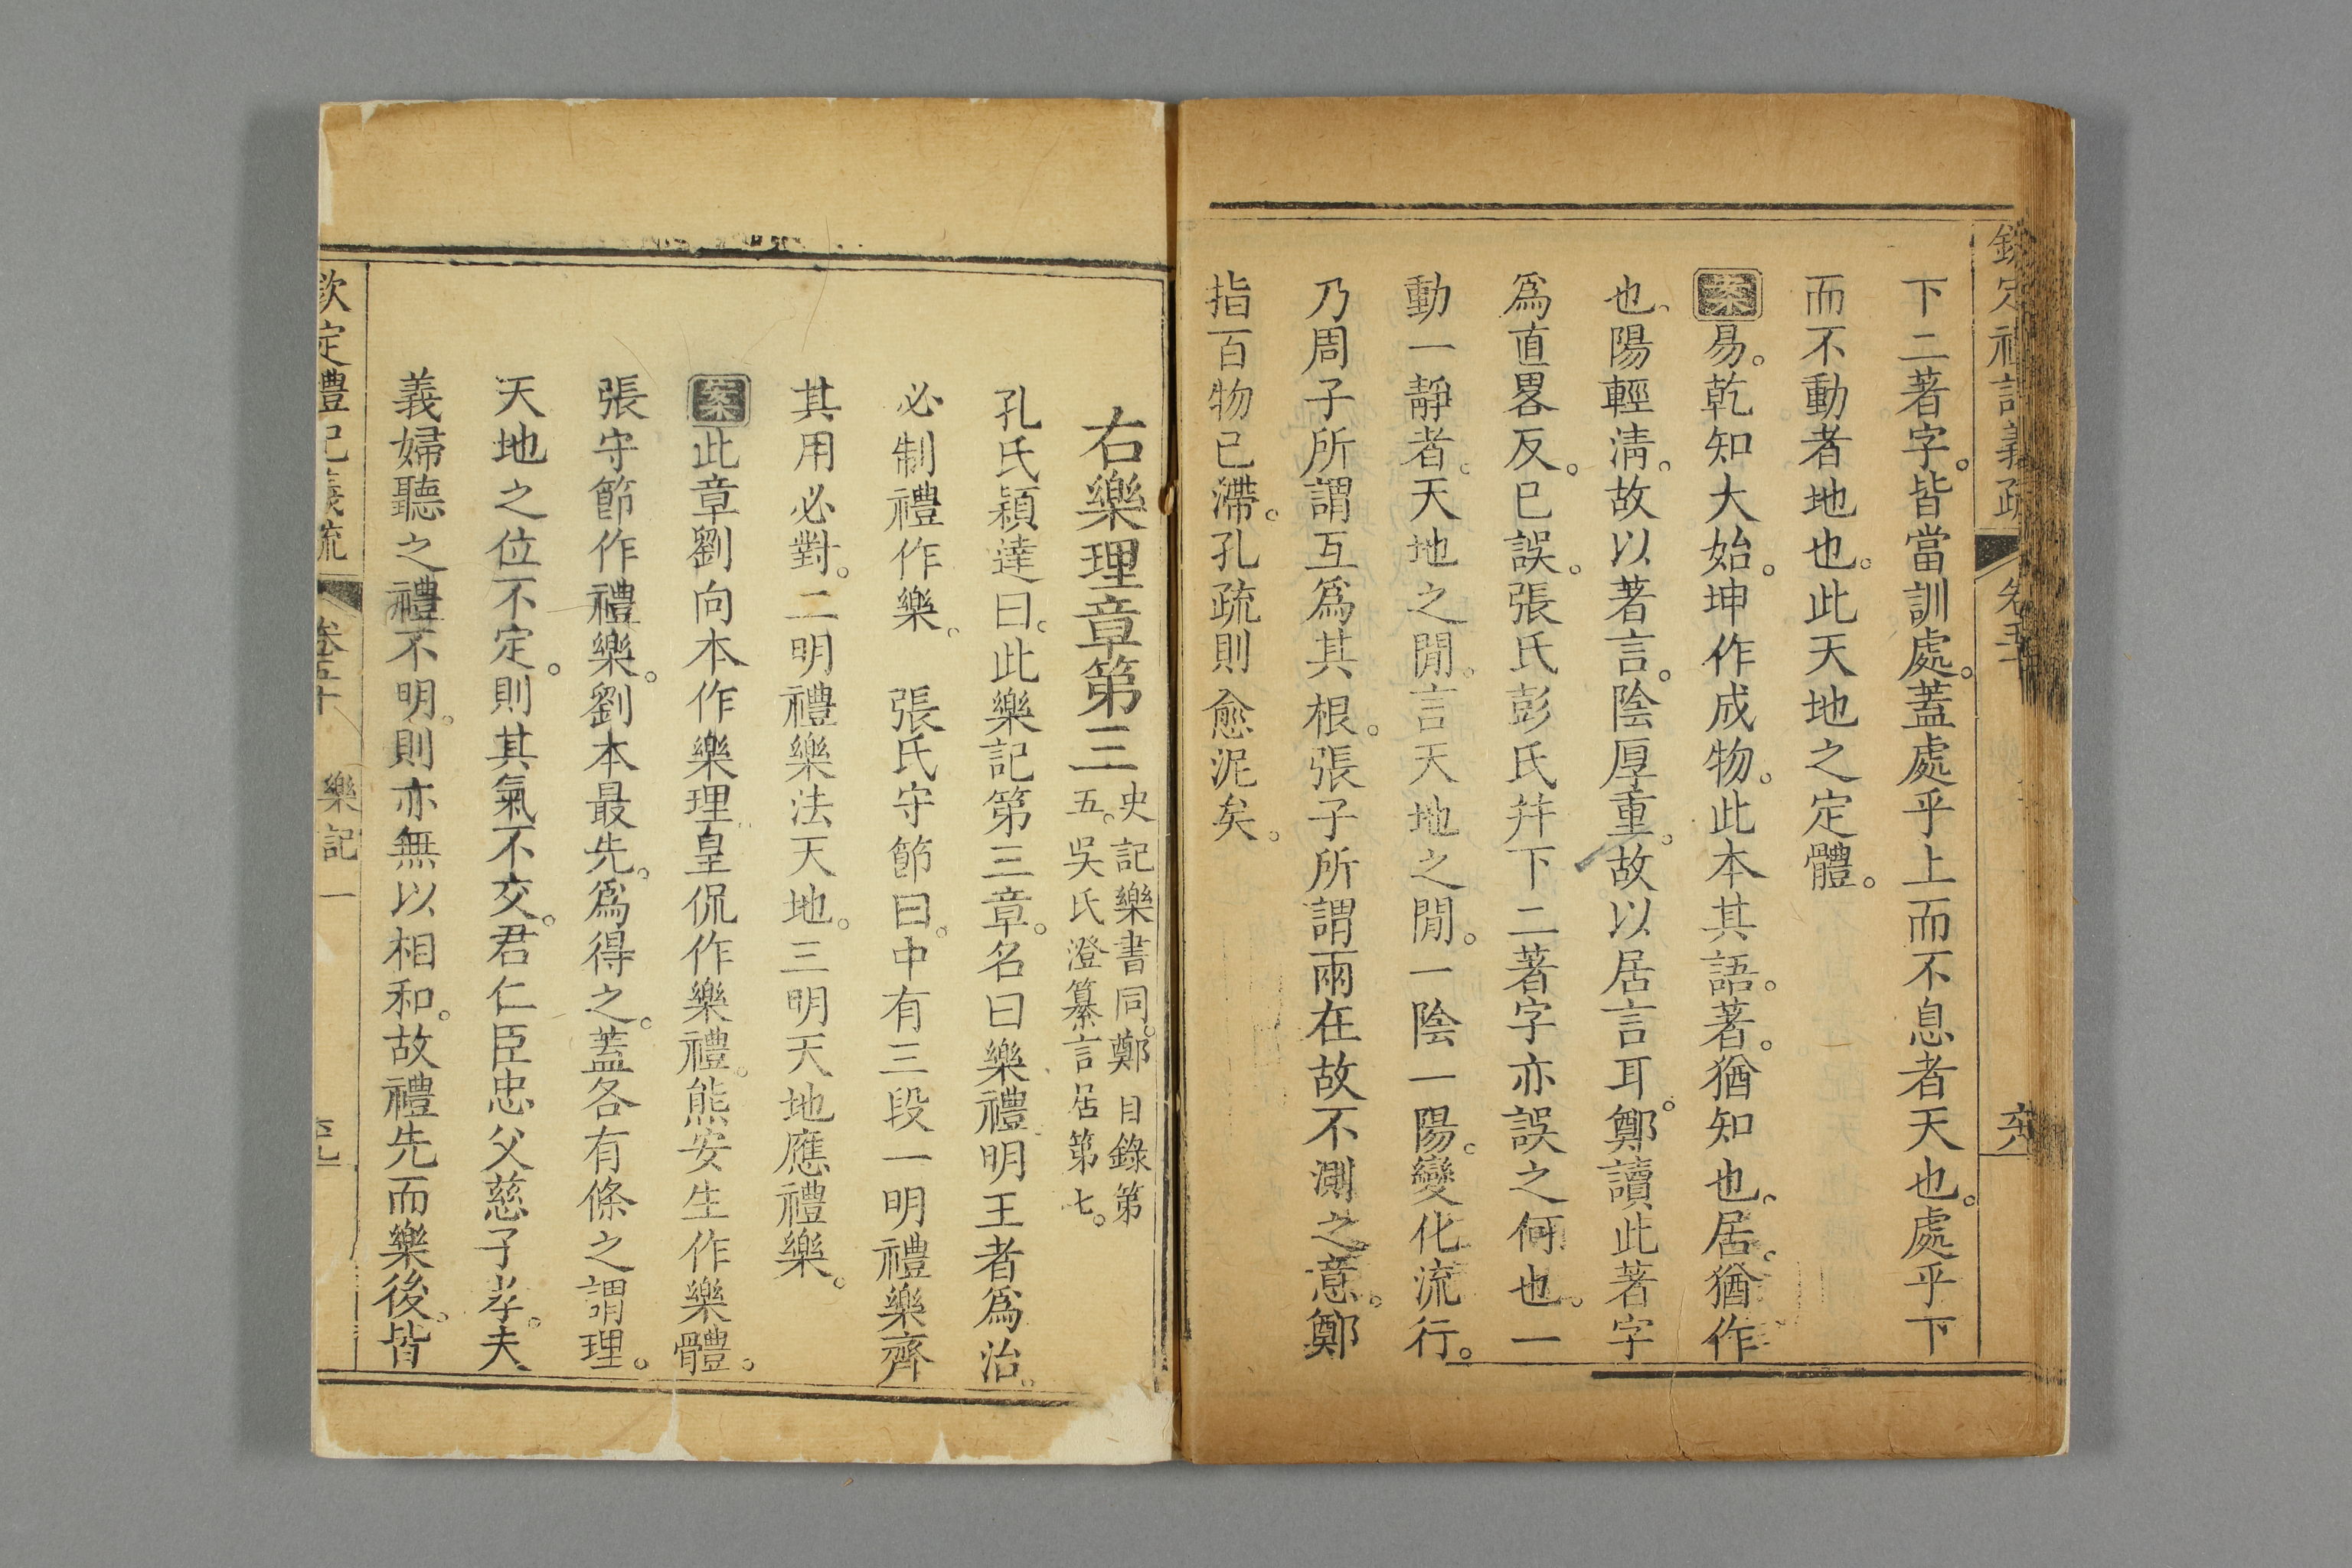 欽定禮記義疏 卷五十 六八
下二著字。皆當訓處。蓋處乎上而不息者天也。處乎下
而不動者地也。此天地之定體。
案易。乾知大始。坤作成物。此本其語。著。猶知也。居。猶作
也。陽輕淸。故以著言。陰厚重。故以居言耳。鄭讀此著字
爲直畧反。已誤。張氏彭氏幷下二著字亦誤之何也。一
動一靜者。天地之閒。言天地之閒。一陰一陽。變化流行。
乃周子所謂互爲其根。張子所謂兩在故不測之意。鄭
指百物已滯。孔疏則愈泥矣。
右樂理章第三 史記樂書同。鄭目錄第
五。吳氏澄纂言居第七。
孔氏穎達曰。此樂記第三章。名曰樂禮。明王者爲治。
必制禮作樂。 張氏守節曰。中有三段一明禮樂齊
其用必對。二明禮樂法天地。三明天地應禮樂。
案此章劉向本作樂理皇侃作樂禮。熊安生作樂體。
張守節作禮樂。劉本最先。爲得之。蓋各有條之謂理。
天地之位不定。則其氣不交。君仁臣忠父慈子孝。夫
義婦聽之禮不明。則亦無以相和。故禮先而樂後。皆
欽定禮記義疏 卷五十 樂記一